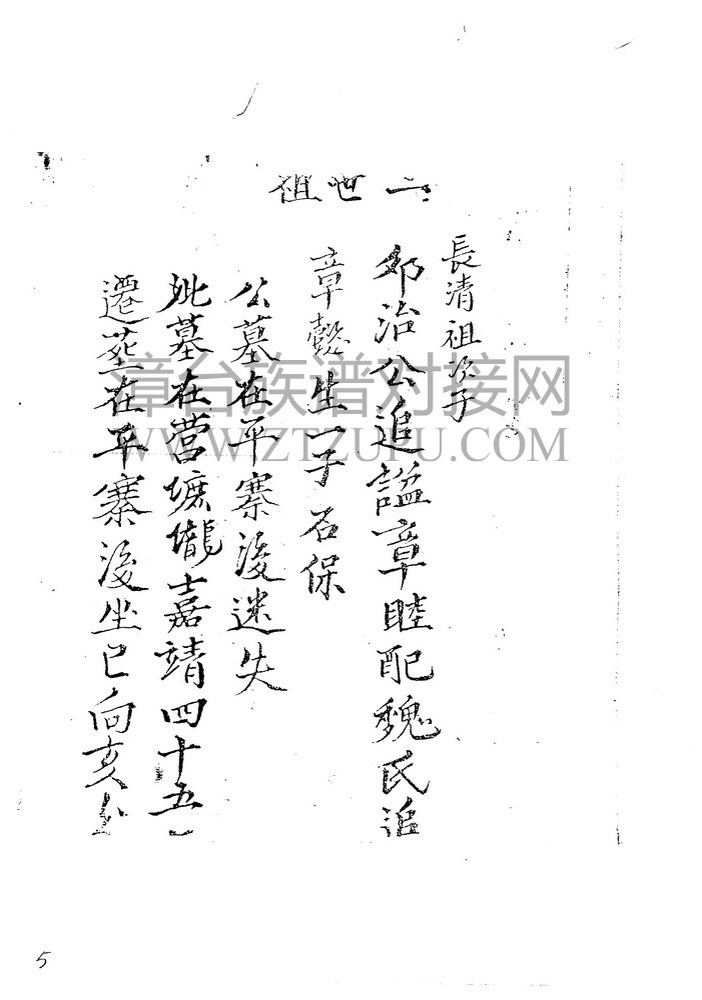 二世祖
長清祖次子
邦治公追諡章睦配魏氏追
章懿生一子石保
公墓在平寨後迷失
妣墓在营壙壠嘉靖四十五
遷塟在平寨後坐巳向亥
漳台族谱对接网
WWW.ZTZUPU.COM
5